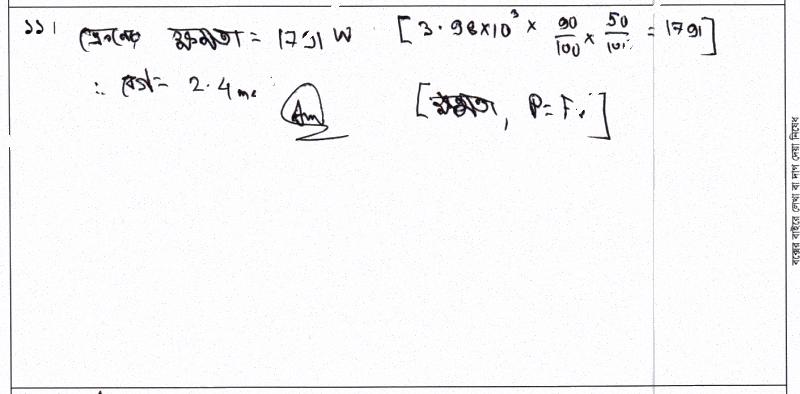 ১১। ক্ষমতা = 1791 W [3.98×10³ × 90/100 × 50/100 = 1791]
∴ বেগ = 2.4 ms Ans [ক্ষমতা, P = Fv]
বক্সের বাইরে লেখা বা দাগ দেয়া নিষেধ